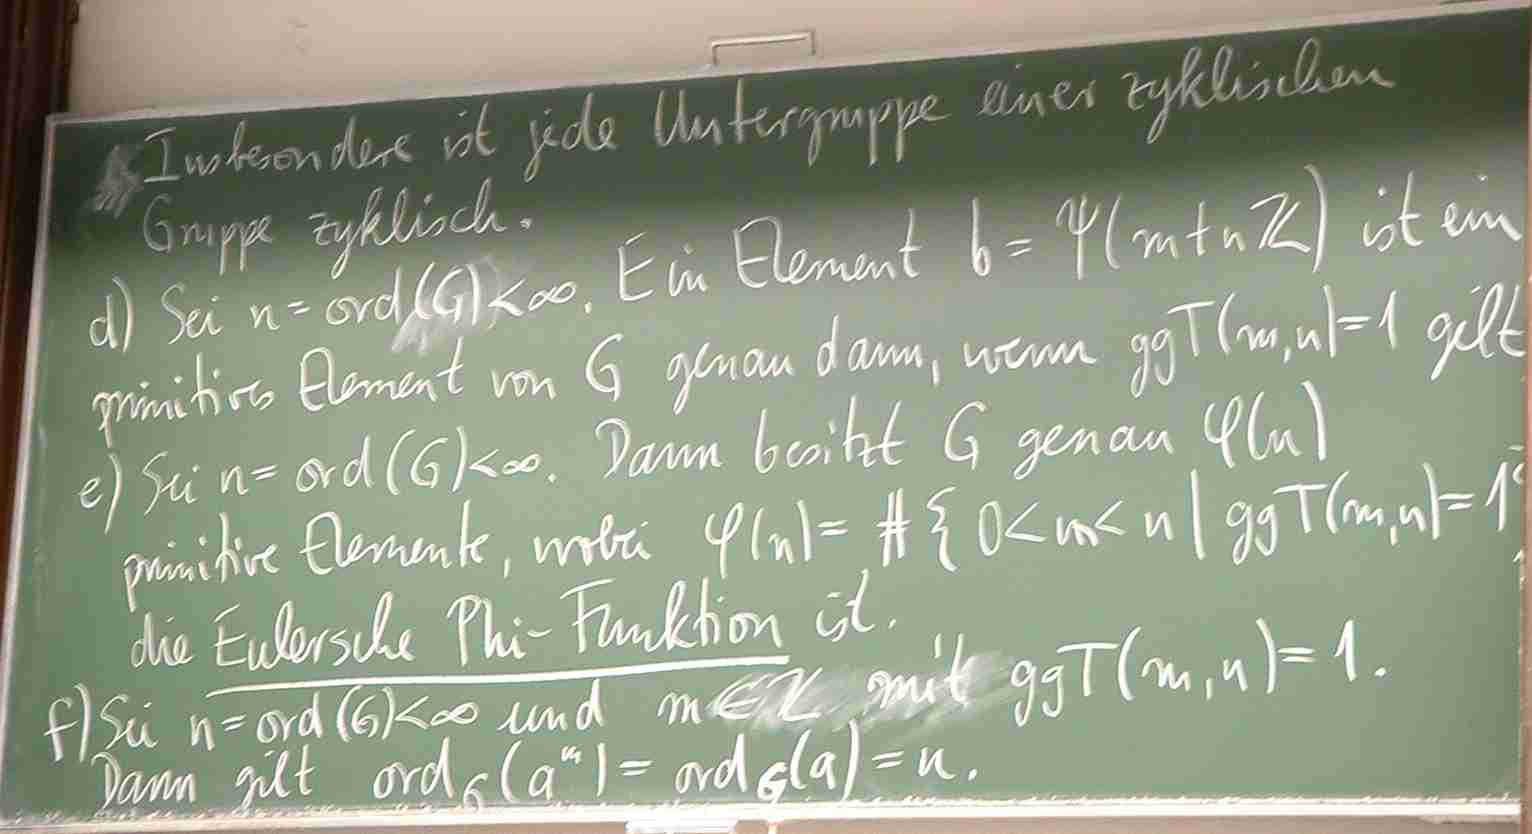 Insbesondere ist jede Untergruppe einer zyklischen
Gruppe zyklisch.
d) Sei n = ord(G) < ∞. Ein Element b = Ψ(m+nℤ) ist ein
primitives Element von G genau dann, wenn ggT(m,n)=1 gilt
e) Sei n = ord(G) < ∞. Dann besitzt G genau φ(n)
primitive Elemente, wobei φ(n) = #{ 0<m<n | ggT(m,n)=1
die Eulersche Phi-Funktion ist.
f) Sei n = ord(G) < ∞ und m ∈ ℤ mit ggT(m,n)=1.
Dann gilt ord_G(a^m) = ord_G(a) = n.